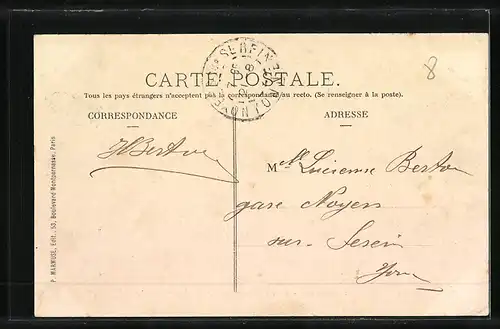 CARTE POSTALE.
Tous les pays étrangers n'acceptent pas la correspondance au recto. (Se renseigner à la poste).
CORRESPONDANCE
ADRESSE
8
M Lucienne Berton
gare Noyers
sur Serein
Yonne
P. MARMUSE, Edit., 53, Boulevard Montparnasse, Paris